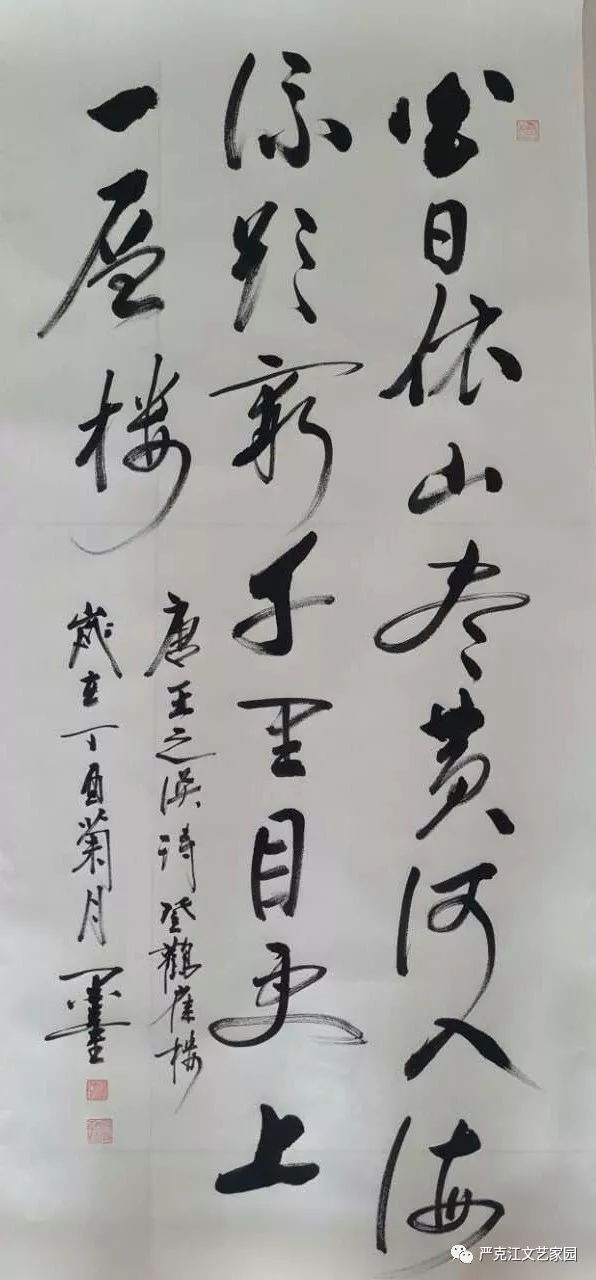 白日依山尽黄河入海
流欲穷千里目更上
一层楼
唐王之涣诗登鹳雀楼
岁在丁酉菊月
严克江文艺家园